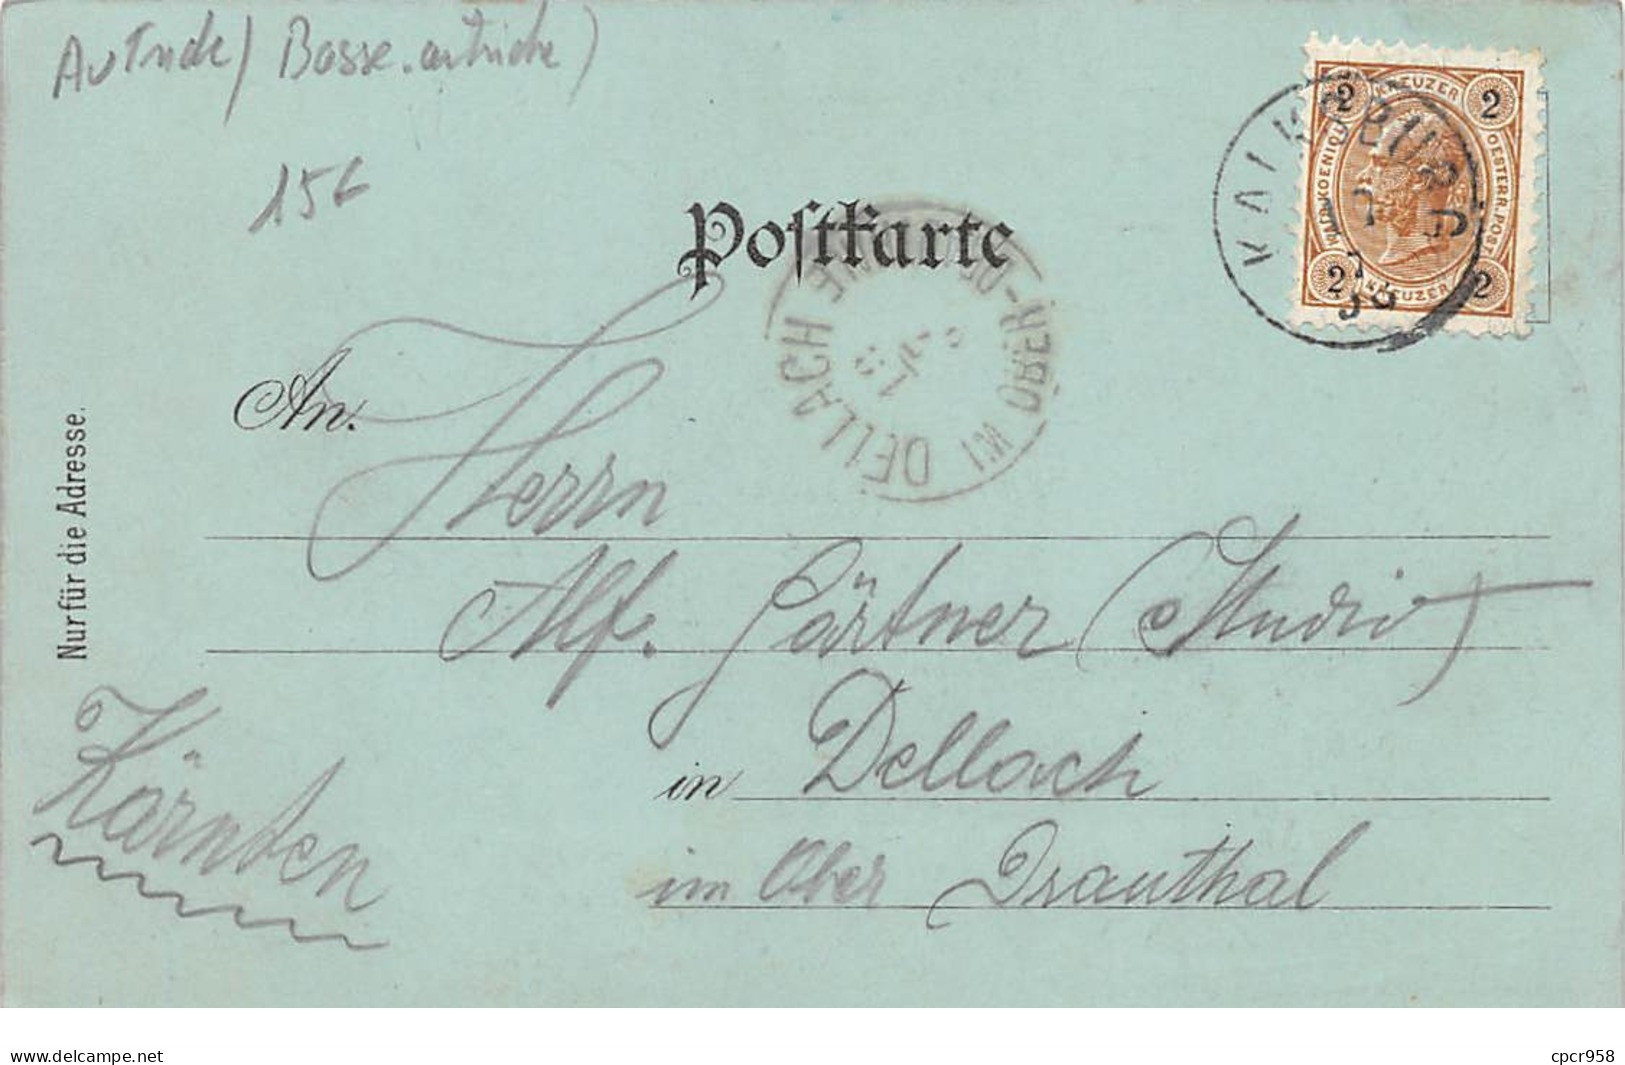 Autriche / Basse.autriche)
15€
Postkarte
2 KREUZER 2
KAIS. KOENIGL.
OESTERR. POST
2 KREUZER 2
KALKSBURG
DELLACH IM OBER-DRAUTHALE
An.
Herrn
Alf. Gärtner (Studio)
in Dellach
im Ober Drauthal
Kärnten
Nur für die Adresse.
www.delcampe.net
cpcr958